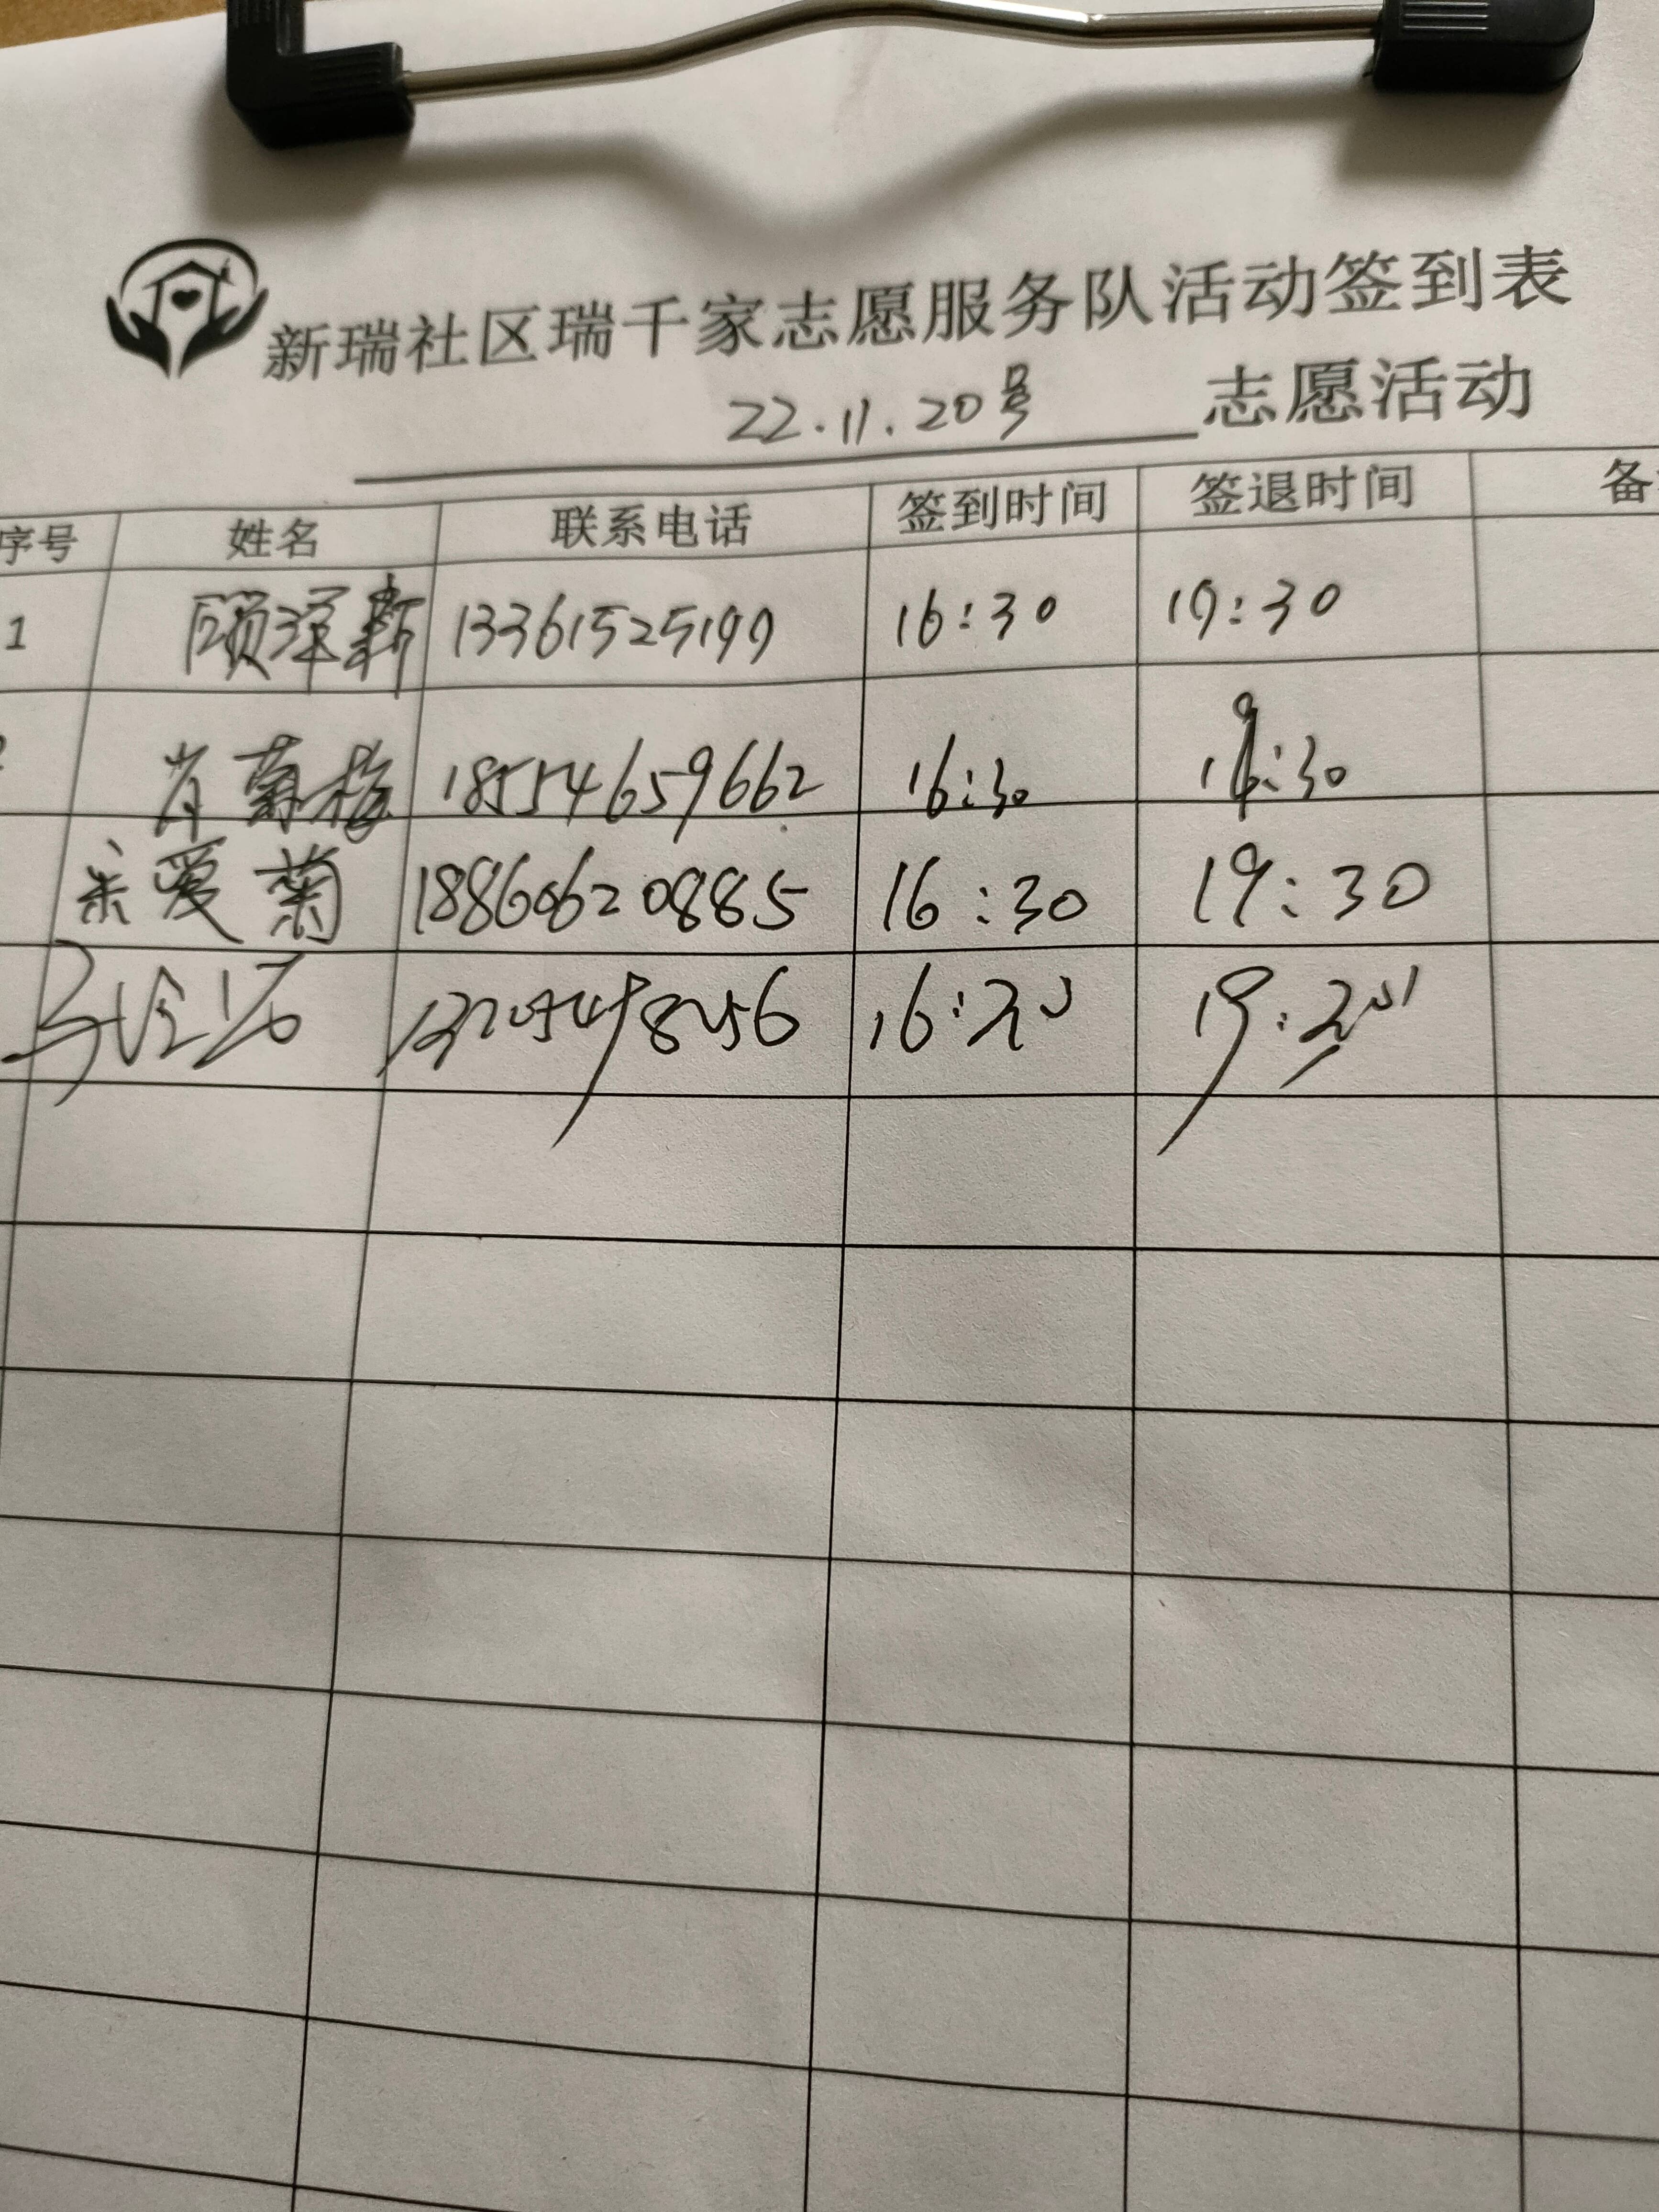 新瑞社区瑞千家志愿服务队活动签到表
22.11.20号 志愿活动
序号 姓名 联系电话 签到时间 签退时间 备
1 顾泽新 13361525199 16:30 19:30
肖菊梅 18554659662 16:30 19:30
宋爱菊 18860620885 16:30 19:30
16:20 19:20